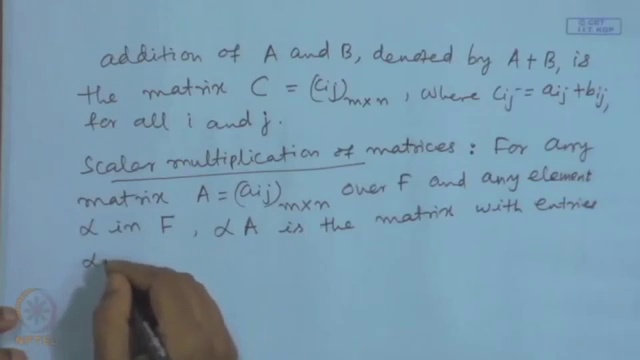 © CET
I.I.T. KGP
addition of A and B, denoted by A + B, is
the matrix C = (cij)m×n, where cij = aij + bij,
for all i and j.
Scalar multiplication of matrices : For any
matrix A = (aij)m×n over F and any element
α in F, α A is the matrix with entries
α